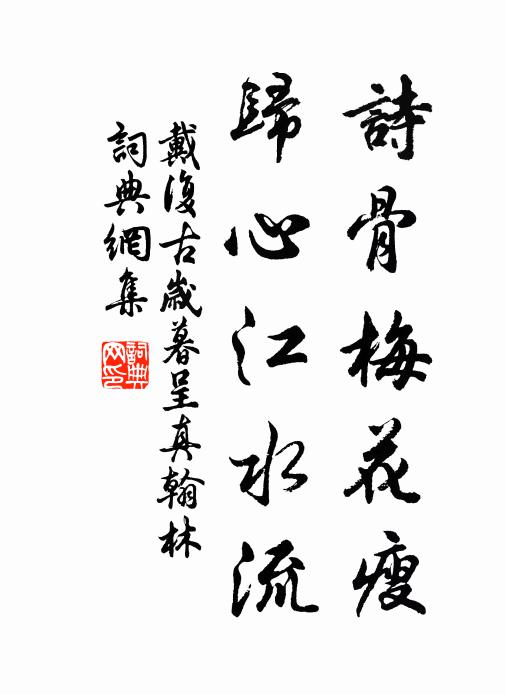 詩骨梅花瘦
歸心江水流
戴復古歲暮呈真翰林
詞典網集
詞典网印